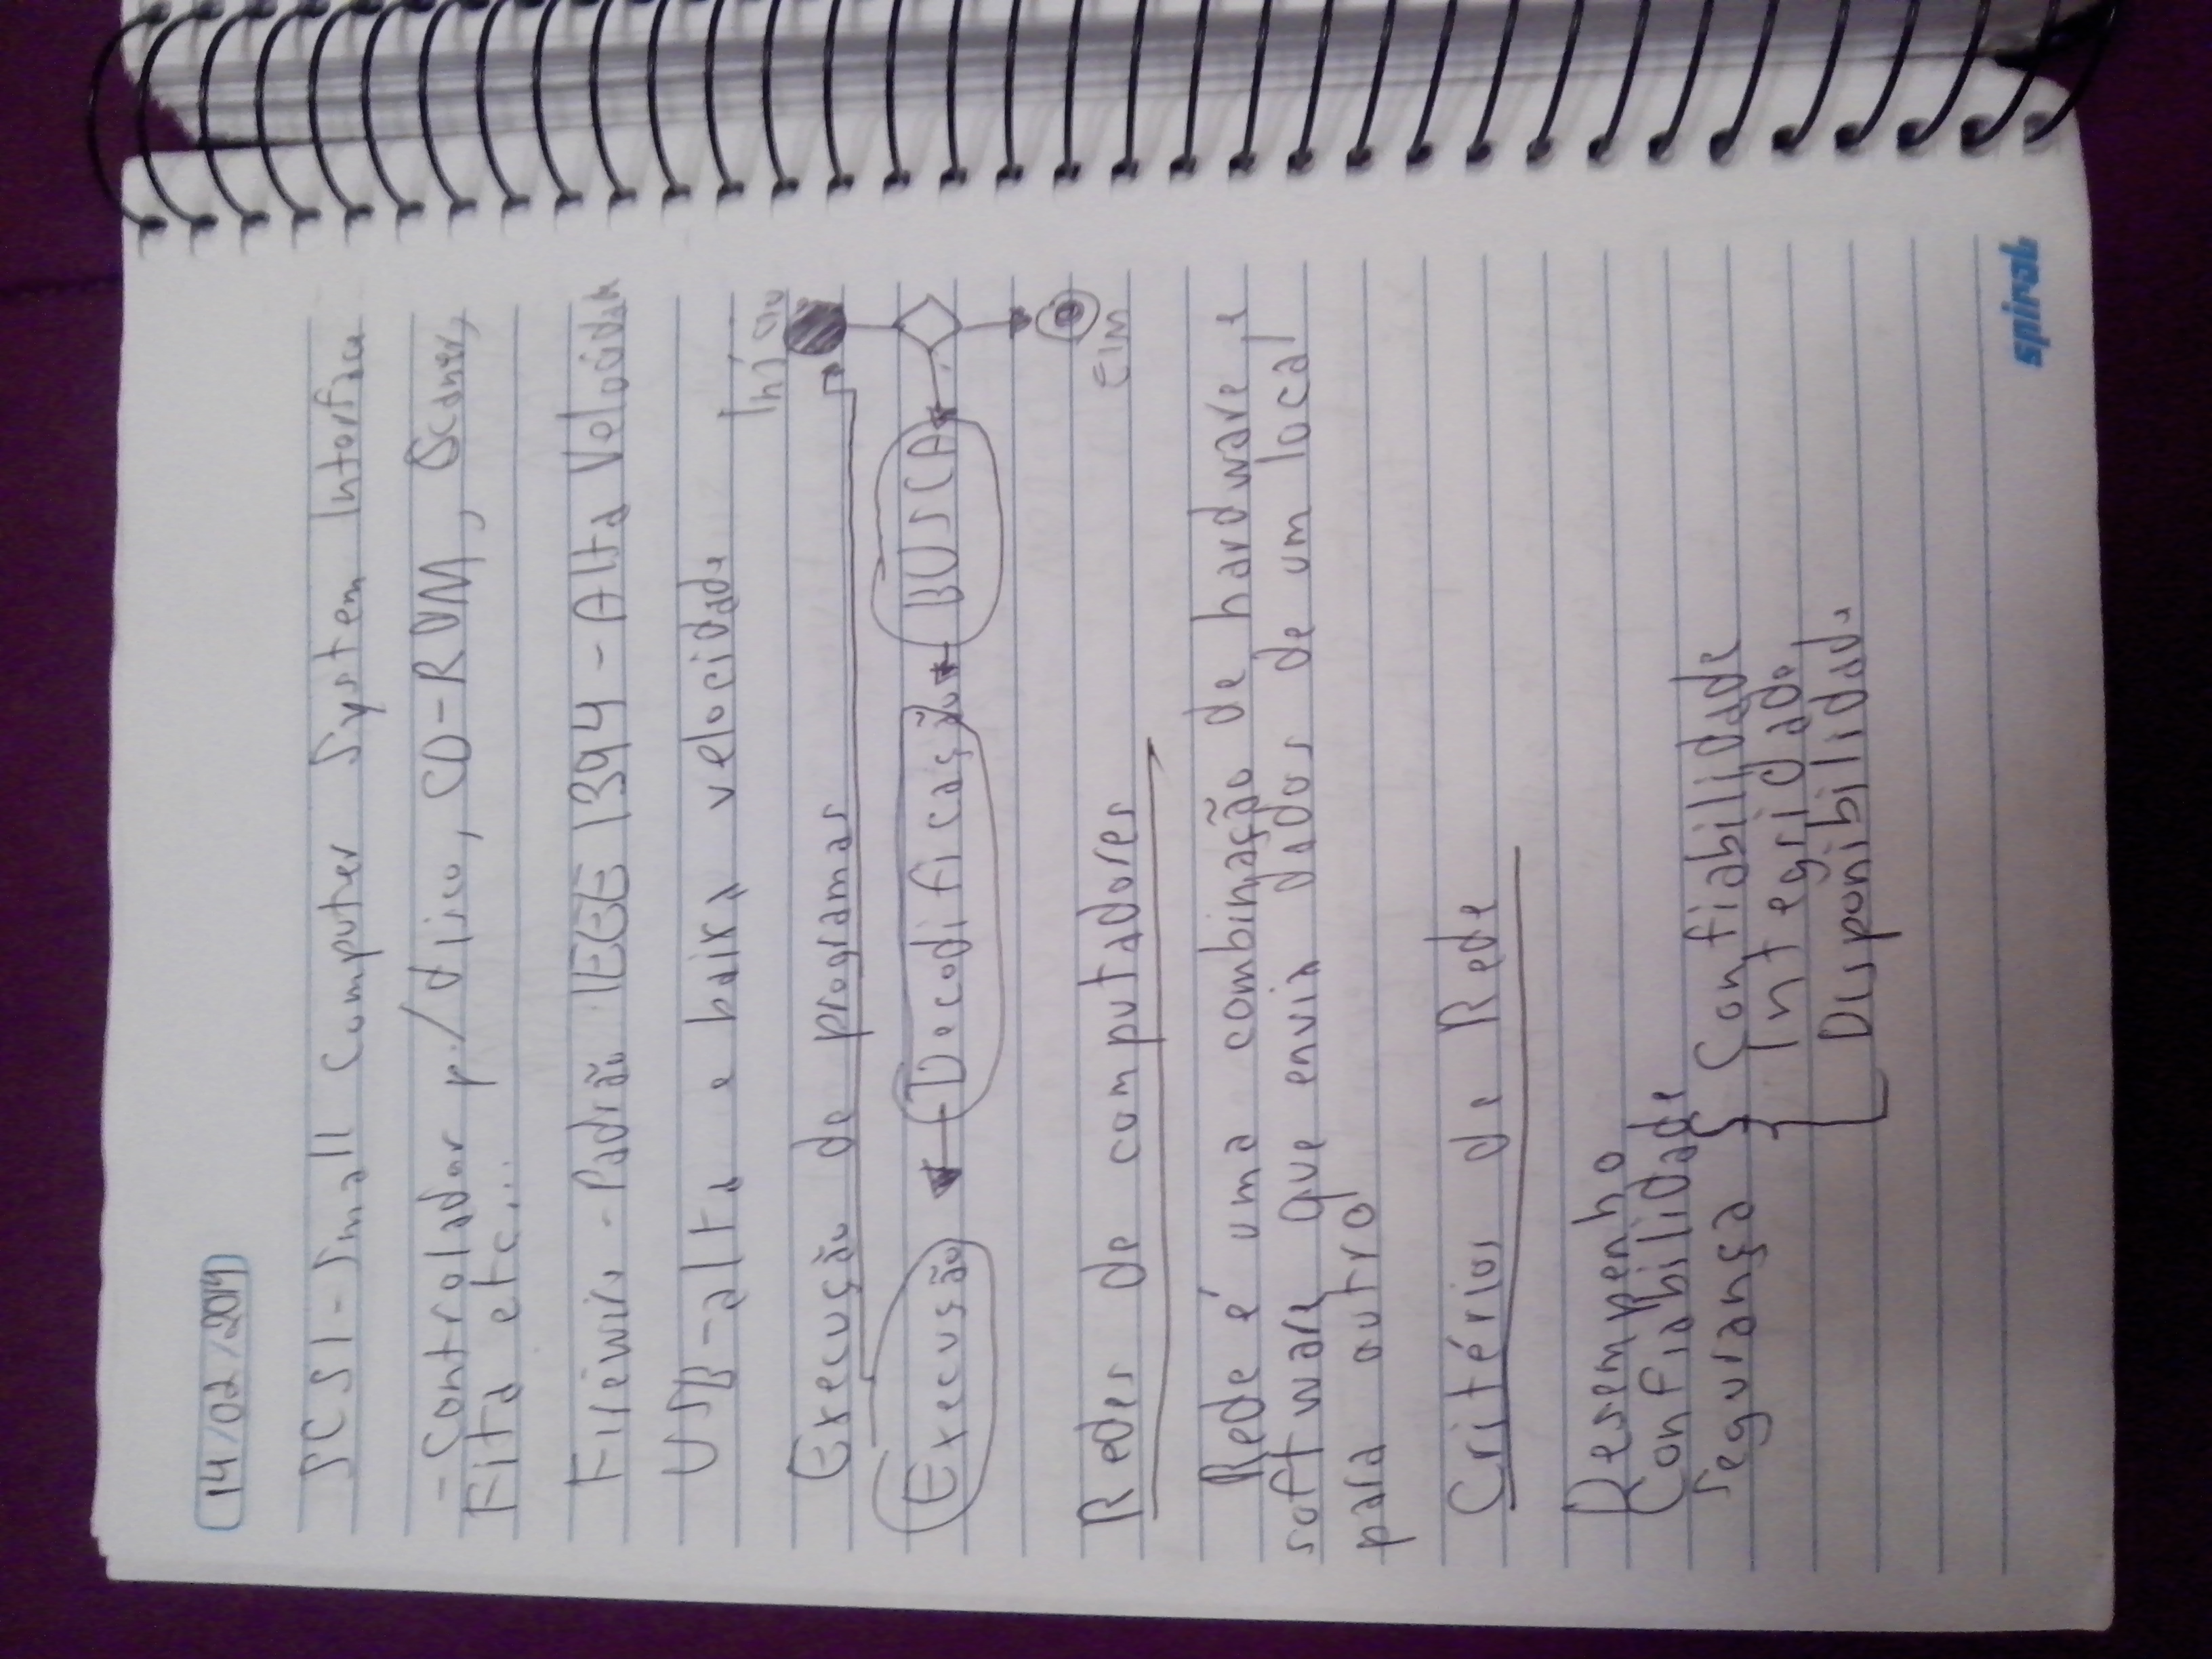 14/02/2014
SCSI - Small Computer System Interface
- Controlador p/ disco, CD-ROM, Scaner,
Fita etc...
Firewire - Padrão IEEE 1394 - Alta Velocidade
USB - alta e baixa velocidade
Início
Execução de programas
Execusão Decodificação BUSCA
Fim
Redes de computadores
Rede é uma combinação de hardware e
software que envia dados de um local
para outro
Critérios de Rede
Desempenho
Confiabilidade
Segurança { Confiabilidade
Integridade
Disponibilidade
spiral